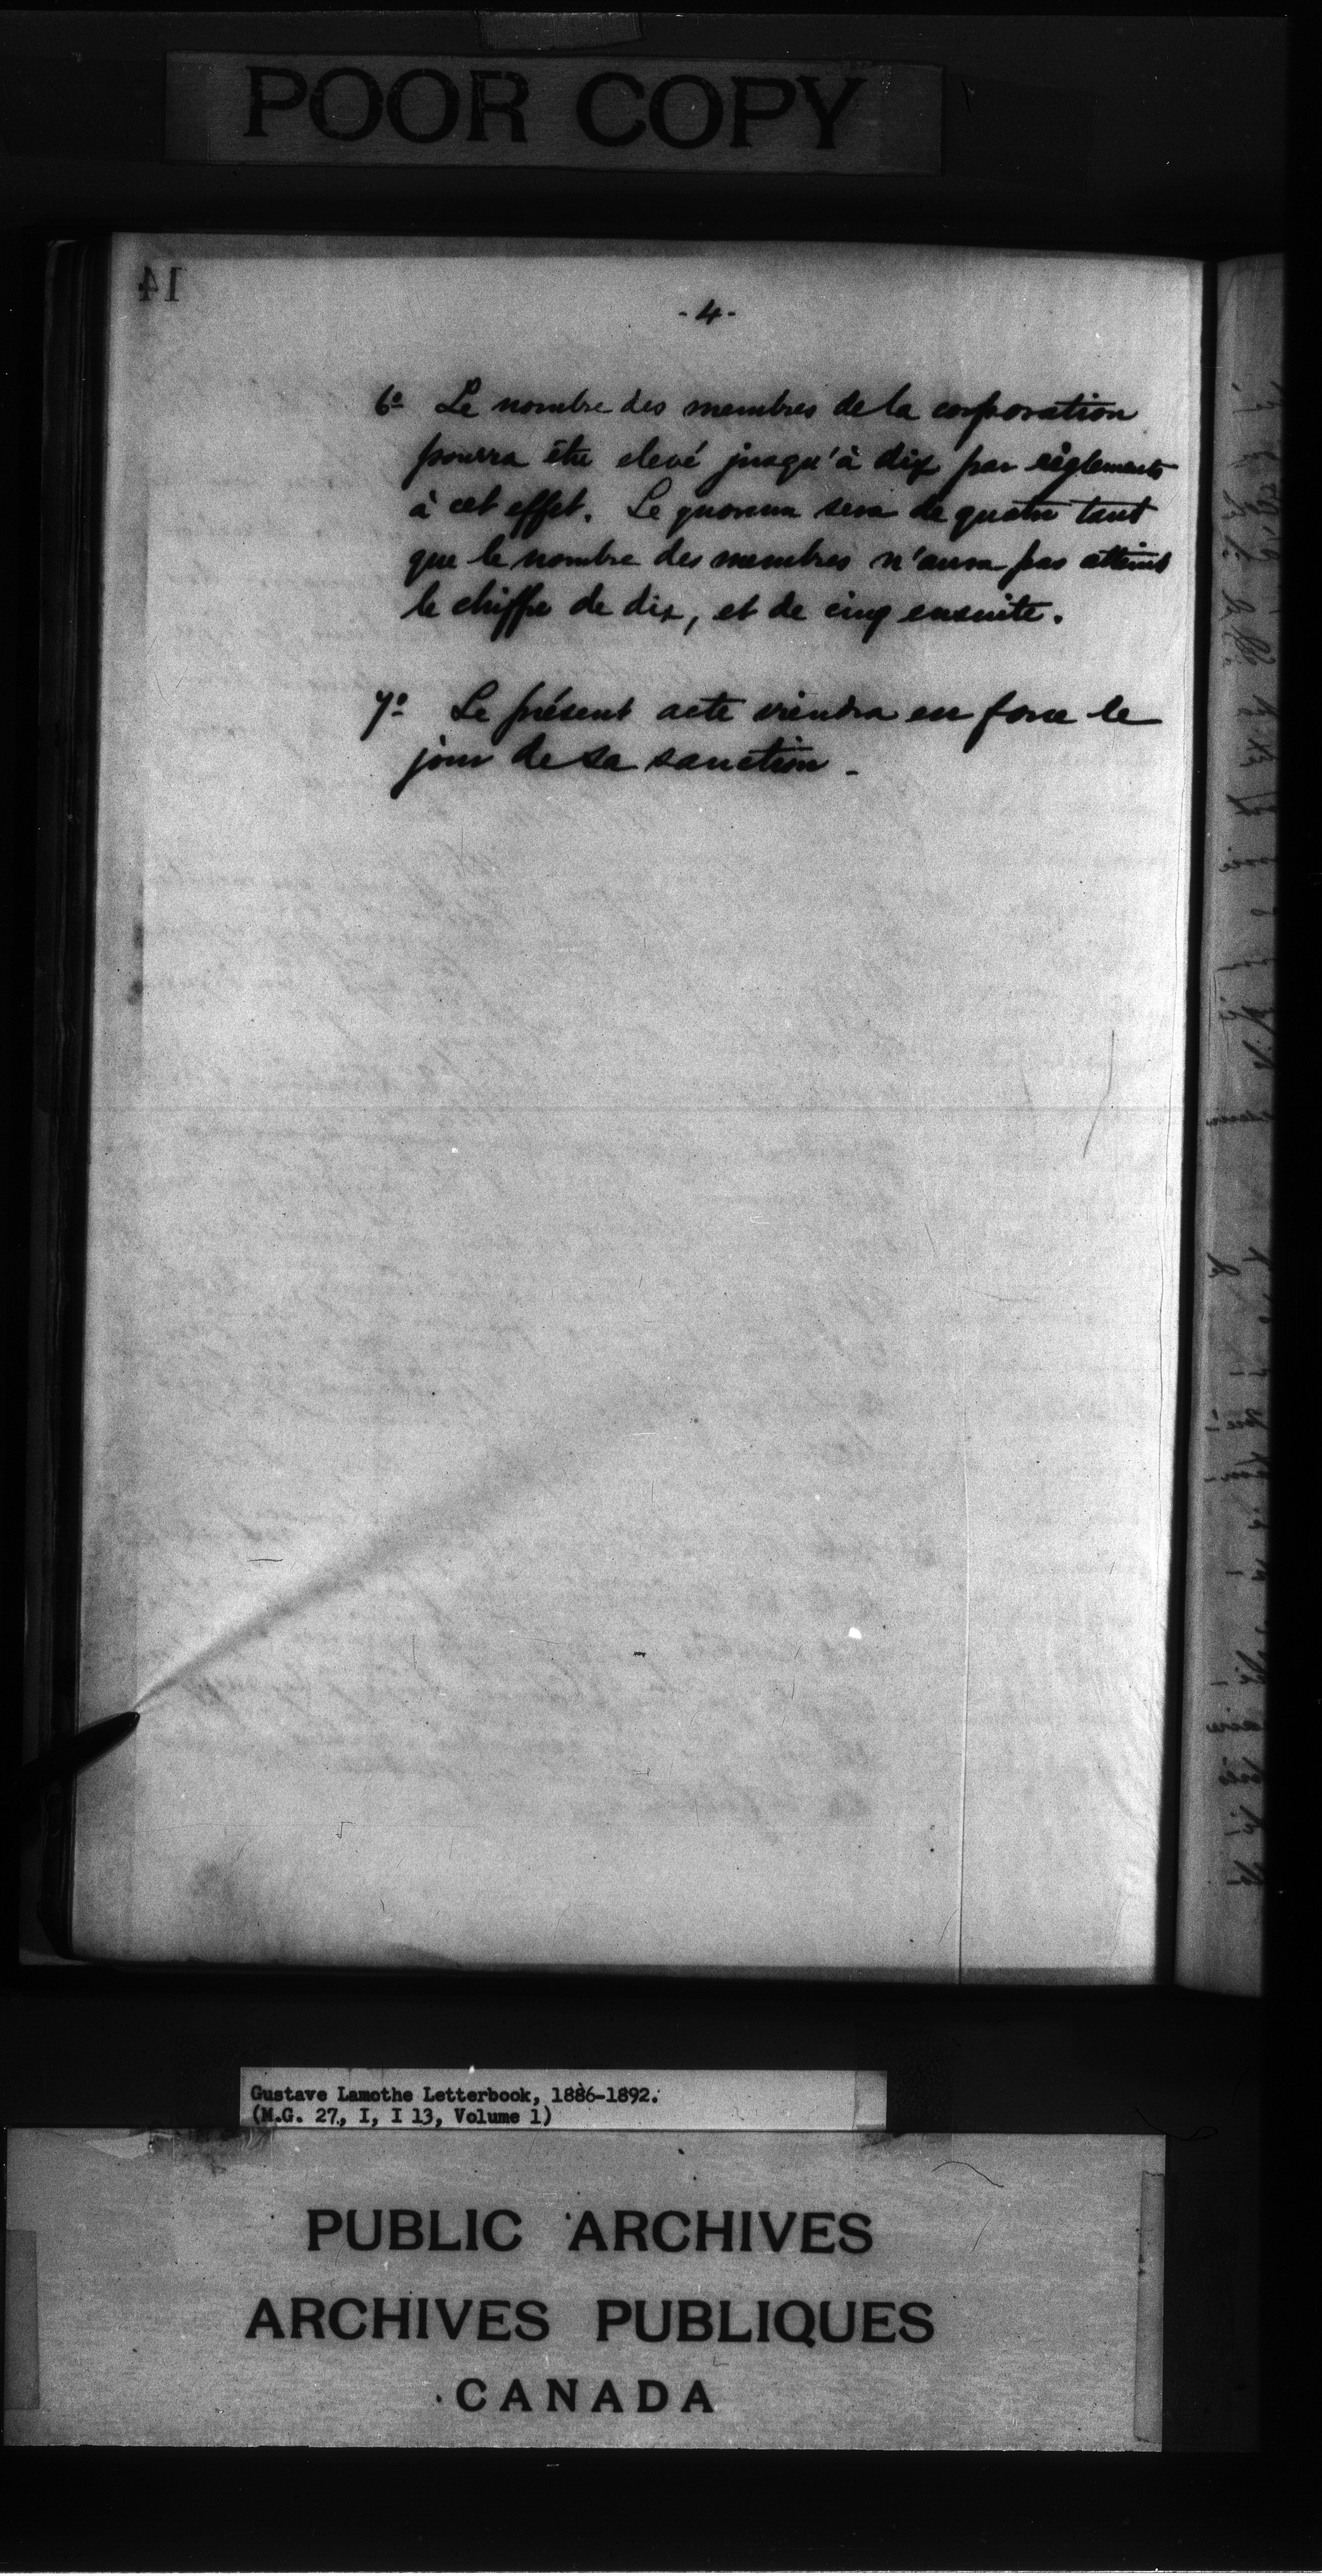 POOR COPY
14
- 4 -
6º Le nombre des membres de la corporation
pourra être elevé jusqu'à dix par règlements
à cet effet. Le quorum sera de quatre tant
que le nombre des membres n'aura pas atteint
le chiffre de dix, et de cinq ensuite.
7º Le présent acte viendra en force le
jour de sa sanction -
Gustave Lamothe Letterbook, 1886-1892.
(M.G. 27, I, I 13, Volume 1)
PUBLIC ARCHIVES
ARCHIVES PUBLIQUES
CANADA